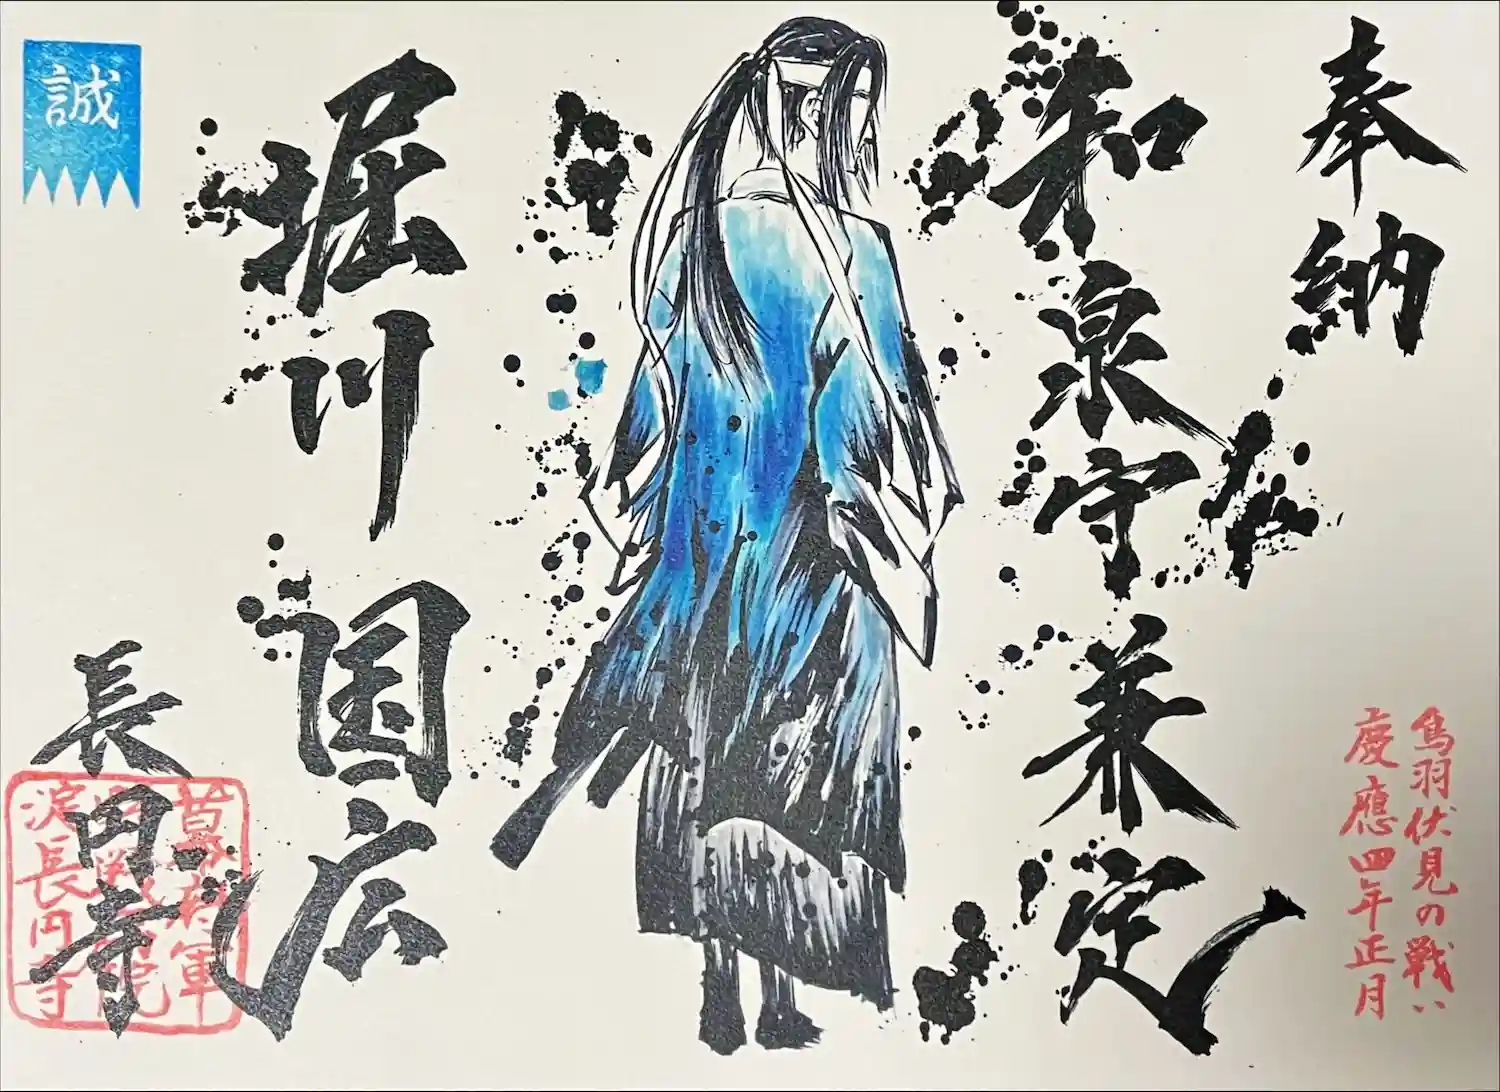 奉納
和泉守兼定
堀川国広
長円寺
誠
鳥羽伏見の戦い
慶應四年正月
幕府軍
淀長円寺